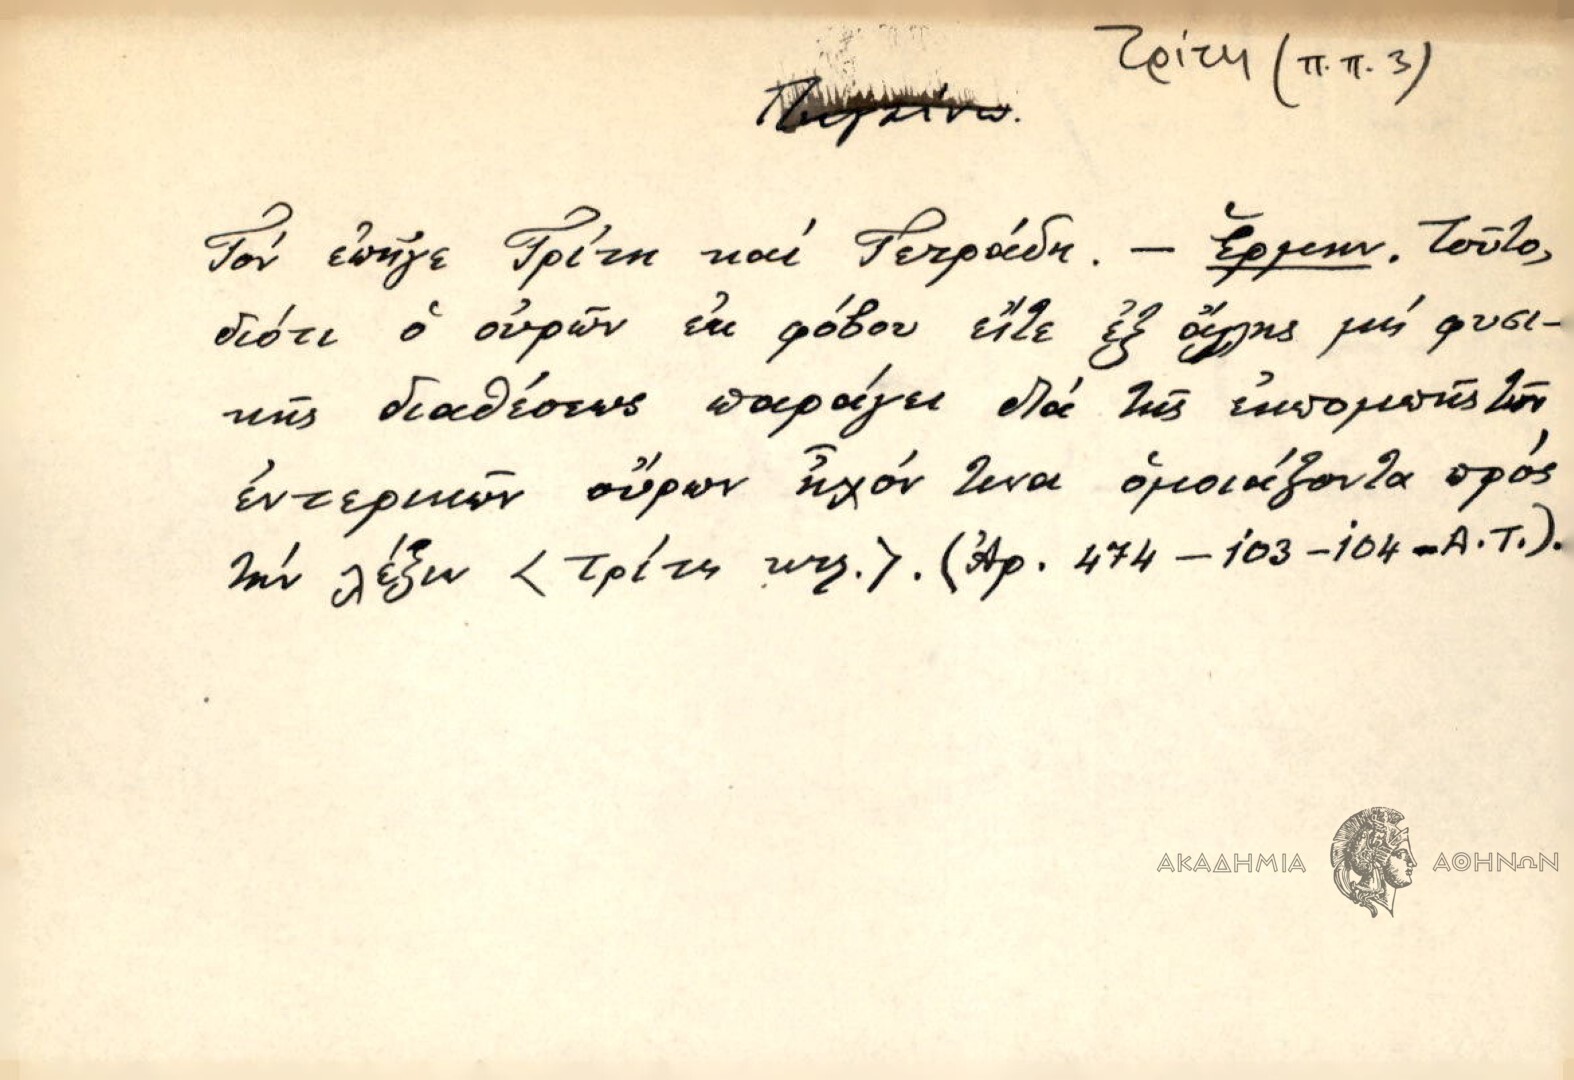 Τρίτη (π.π. 3)
Πηγαίνω.
Τόν ἐπῆγε Τρίτη καί Τετράδη. — Ἑρμην. Τοῦτο,
διότι ὁ οὐρῶν ἐκ φόβου εἴτε ἐξ ἄλλης μή φυσι-
κῆς διαθέσεως παράγει διά τῆς ἐκπομπῆς τῶν
ἐντερικῶν οὔρων ἦχόν τινα ὁμοιάζοντα πρός
τήν λέξιν < Τρίτη κτλ. >. (Ἀρ. 474 — 103 - 104 - Α.Τ.).
ΑΚΑΔΗΜΙΑ ΑΘΗΝΩΝ